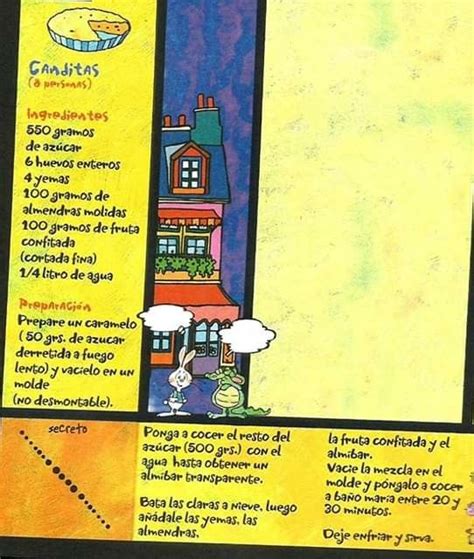 Ganditas
(8 personas)
Ingredientes
550 gramos
de azúcar
6 huevos enteros
4 yemas
100 gramos de
almendras molidas
100 gramos de fruta
confitada
(cortada fina)
1/4 litro de agua
Preparación
Prepare un caramelo
( 50 grs. de azucar
derretida a fuego
lento) y vacielo en un
molde
(no desmontable).
secreto
Ponga a cocer el resto del
azúcar (500 grs.) con el
agua hasta obtener un
almibar transparente.
Bata las claras a nieve, luego
añádale las yemas, las
almendras,
la fruta confitada y el
almibar.
Vacie la mezcla en el
molde y póngalo a cocer
a baño maria entre 20 y
30 minutos.
Deje enfriar y sirva.